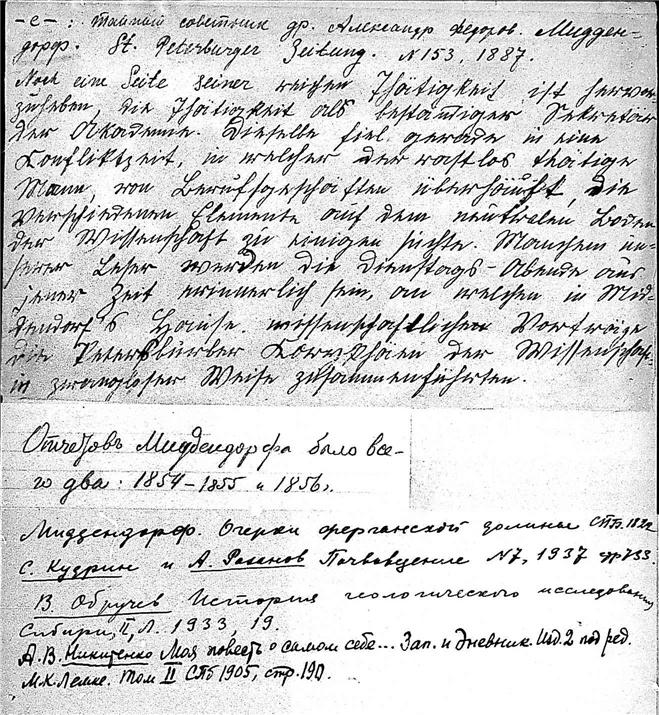 -е-: Тайный советник др. Александр Федоров. Мидден-
дорф. St. Peterburger Zeitung. N 153, 1887.
Noch eine Seite seiner reichen Thätigkeit ist hervor-
zuheben, die Thätigkeit als beständiger Sekretär
der Akademie. Dieselbe fiel gerade in eine
Konfliktzeit, in welcher der rastlos thätige
Mann, von Berufsgeschäften überhäuft, die
verschiedenen Elemente auf dem neutralen Boden
der Wissenschaft zu einigen suchte. Manchem un-
serer Leser werden die Dienstags-Abende aus
jener Zeit erinnerlich sein, an welchen in Mid-
dendorf's Hause wissenschaftlichen Vorträge
die Petersburber Koryphäen der Wissenschaft
in zwangloser Weise zusammenführten.
Отчетовъ Миддендорфа было все-
го два: 1854-1855 и 1856.
Миддендорф. Очерки ферганской долины СПб. 1882
С. Кудрин и А. Розанов Почвоведение N7, 1937
В. Обручев История геологического исследования
Сибири, II, Л. 1933 19.
А.В. Никитенко Моя повесть о самом себе... Зап. и дневник. Изд. 2 под ред.
М.К. Лемке. Том II СПб 1905, стр. 190.